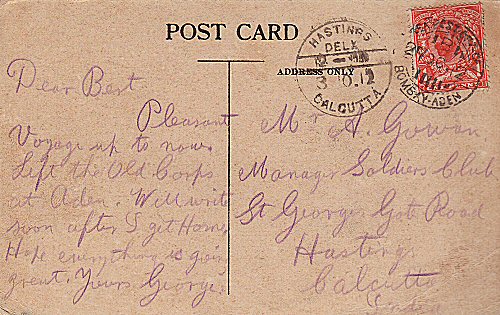 POST CARD
ADDRESS ONLY
HASTINGS
DELY
3 0.12
CALCUTTA
BOMBAY-ADEN
Dear Bert
Pleasant
Voyage up to now.
Left the Old Corps
at Aden. Will write
soon after I get Home.
Hope everything is goin
great. Yours George.
Mr A. Gowan
Manager Soldiers Club
St Georges Gate Road
Hastings
Calcutta
India